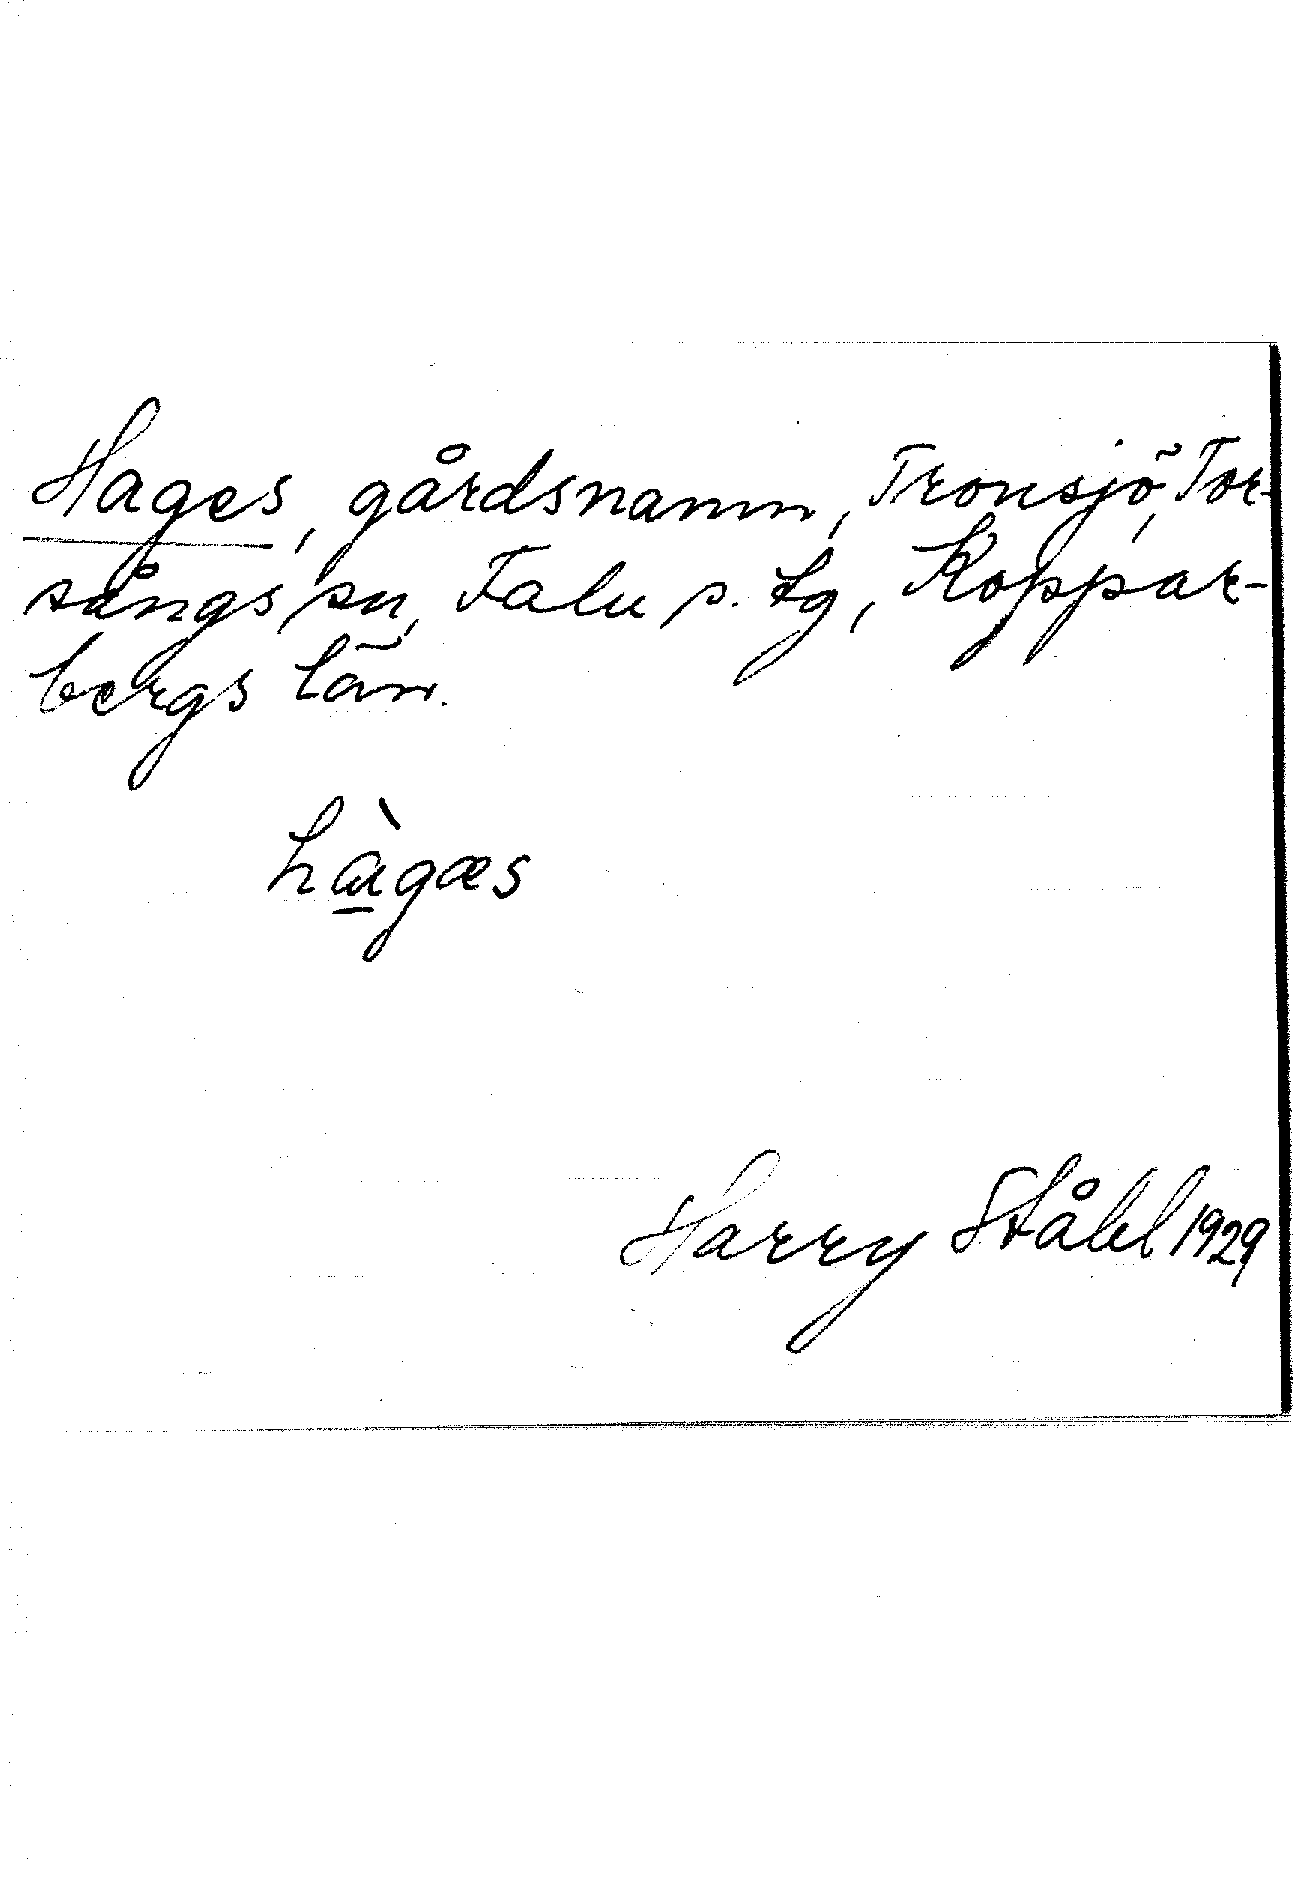 Hages, gårdsnamn, Tronsjö, Tor-
sångs sn, Falu s. tg, Koppar-
bergs län.
hà̱gæs
Harry Ståhl 1929